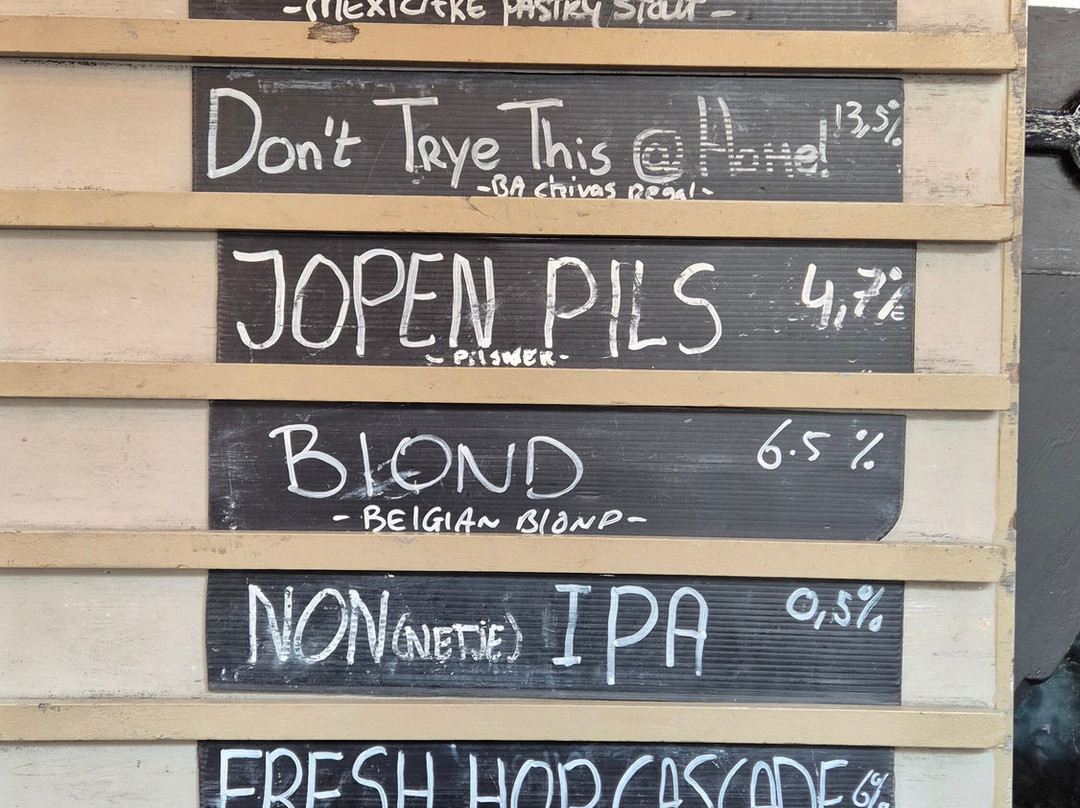 -MEXICAKE PASTRY STOUT-
Don't Trye This @ Home! 13,5%
-BA Chivas Regal-
JOPEN PILS 4,7%
- PILSNER-
BLOND 6.5 %
- BELGIAN BLOND-
NON(NETJE) IPA 0,5%
FRESH HOP CASCADE 6%